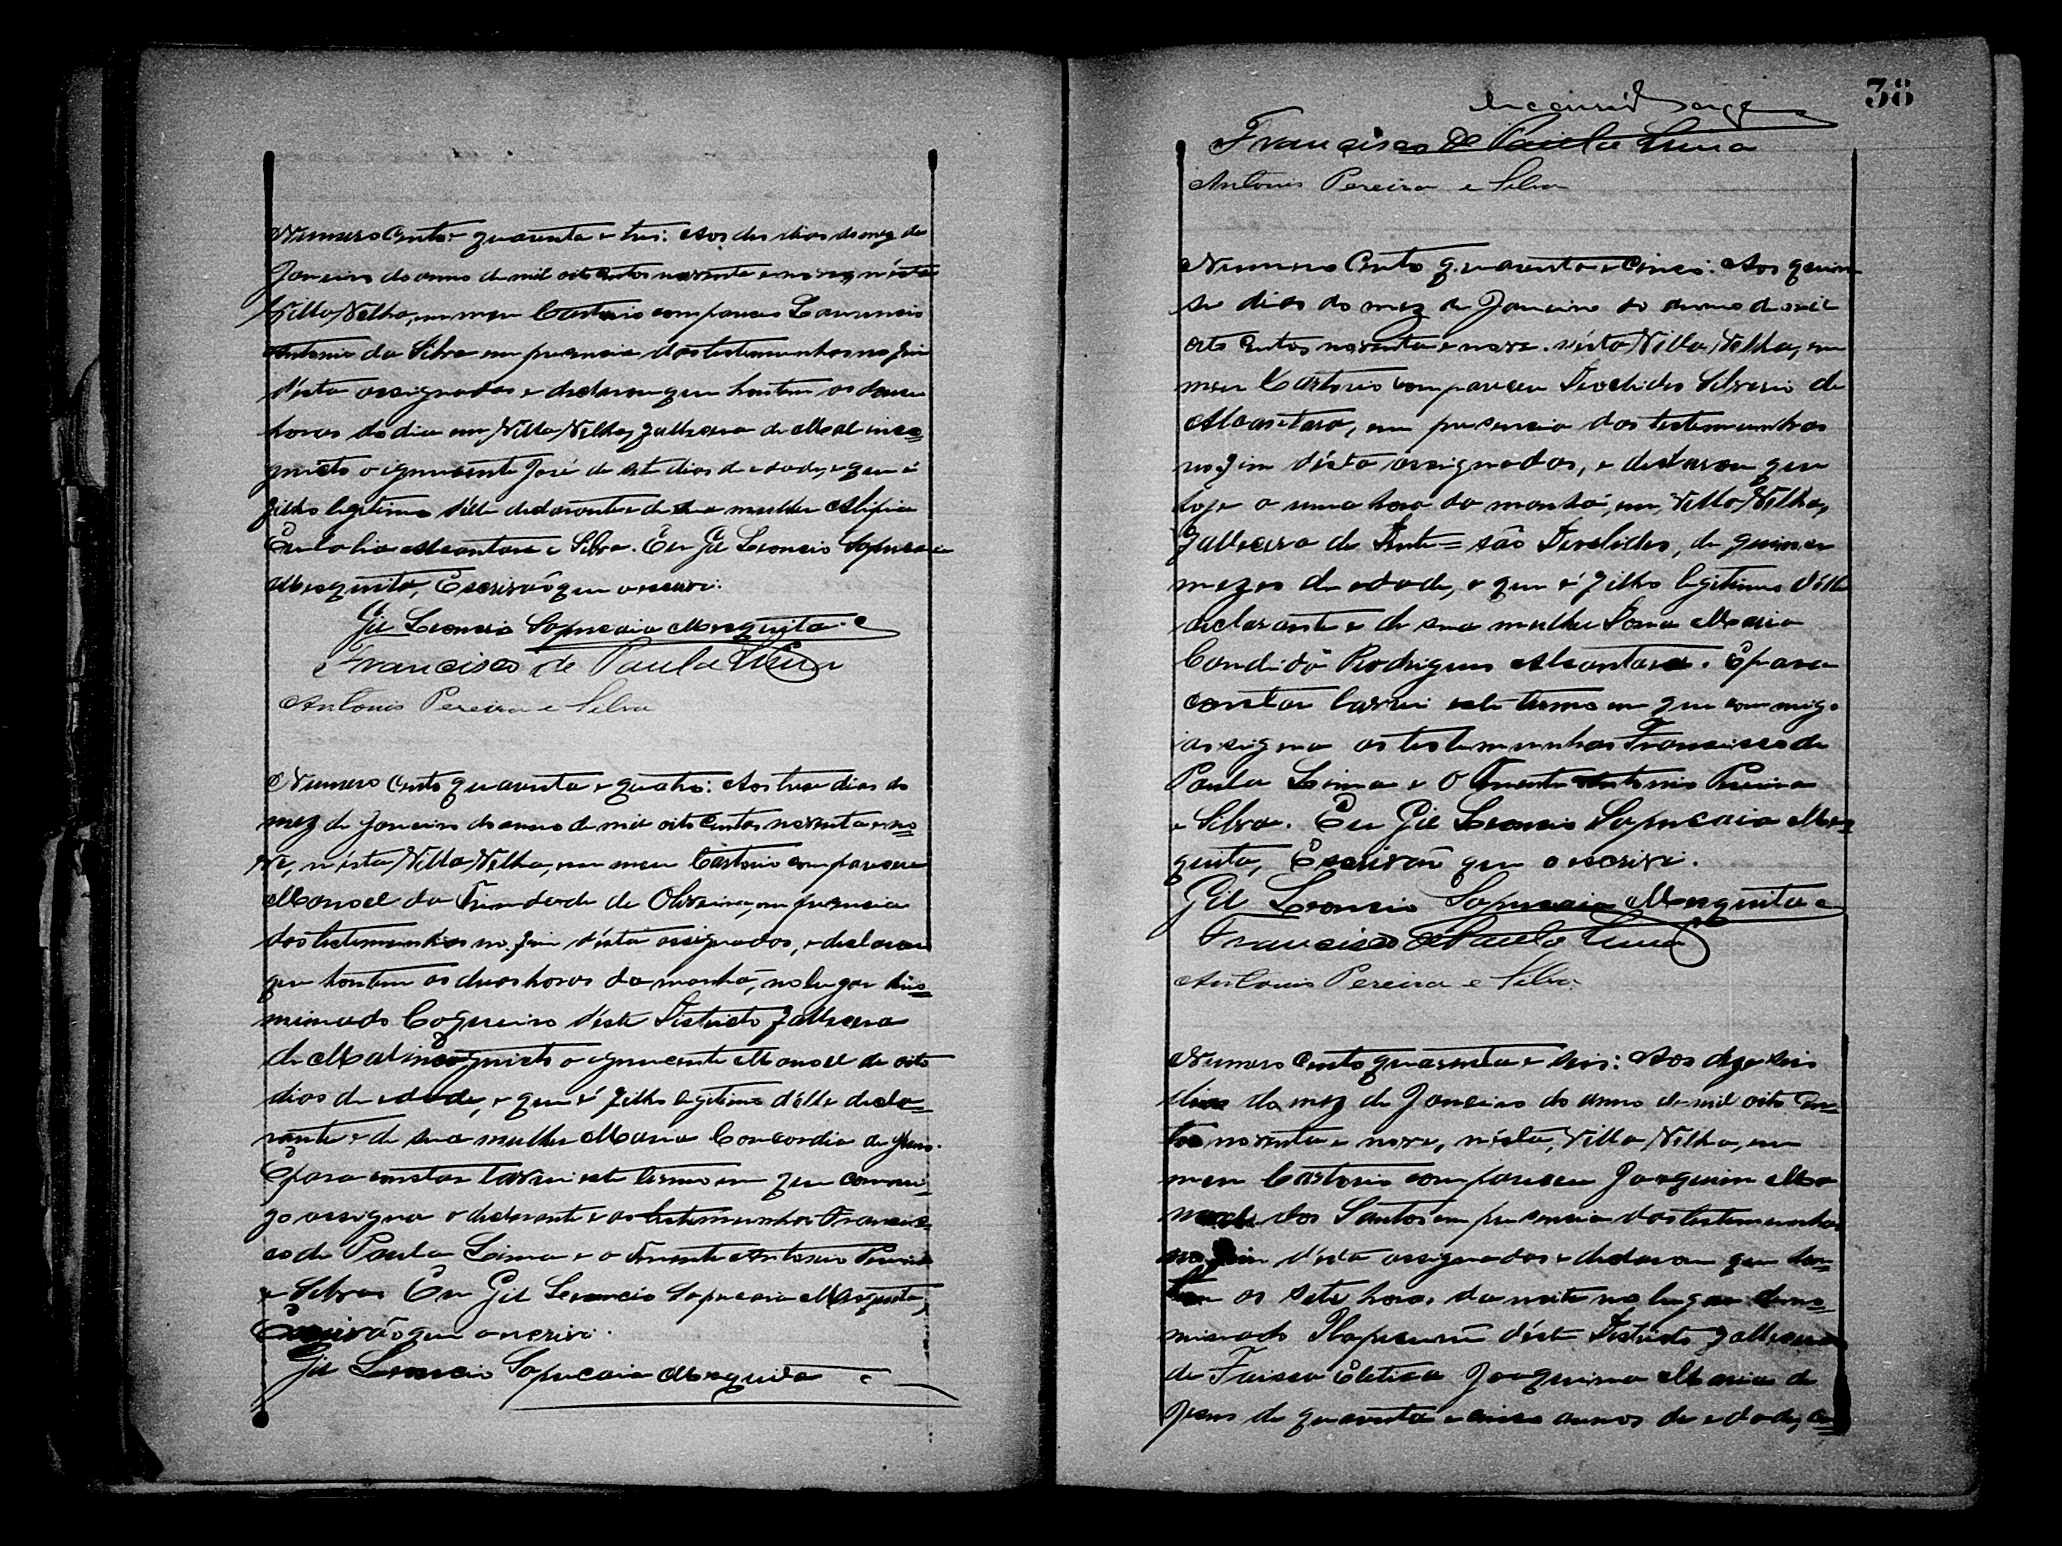 Numero Cento e quarenta e tres: Aos des dias do mez de
Janeiro do anno de mil oito centos noventa e nove, n'ésta
Villa Velha, em meu Cartorio compareceu Lourencio
Antonio da Silva em presencia das testemunhas no fim
d'ésta assignadas e declarou que hontem as
horas do dia em Villa Velha, falleceu de Mal inco=
gnicto o ignocente José de sete dias de edade, e que é
filho legitimo d'élle declarante e de sua mulher
Eulalia Alcantara e Silva. Eu Gil Leoncio Sapucaia
Mesquita, Escrivão que o escrevi.
Gil Leoncio Sapucaia Mesquita
Francisco de Paula Lima
Antonio Pereira e Silva
Numero Cento quarenta e quatro: Aos treze dias do
mez de Janeiro do anno de mil oito centos noventa e no=
ve, n'ésta Villa Velha, em meu Cartorio compareceu
Manoel da Trindade de Oliveira, em presencia
das testemunhas no fim d'ésta assignadas, e declarou
que hontem as duas horas da manhã, no lugar dino=
minado Coqueiro d'éste Districto falleceu
de Mal incognicto o ignocente Manoel de oito
dias de edade, e que é filho legitimo d'élle decla=
rante e de sua mulher Maria Concordia de Jesus.
E para constar lavrei este termo em que commi=
go assigna o declarante e as testemunhas Francis=
co de Paula Lima e o Tenente Antonio Pereira
e Silva. Eu Gil Leoncio Sapucaia Mesquita,
Escrivão que o escrivi.
Gil Leoncio Sapucaia Mesquita
38
Francisco de Paula Lima
Antonio Pereira e Silva
Numero Cento quarenta e cinco: Aos quin=
se dias do mez de Janeiro do anno de mil
oito centos noventa e nove. n'ésta Villa Velha, em
meu Cartorio compareceu Deoclides Silverio de
Alcantara, em presencia das testemunhas
no fim d'ésta assignadas, e declarou que
hoje a uma hora da manhã, em Villa Velha,
falleceu de Denti=são Deoclides, de quinse
mezes de edade, e que é filho legitimo d'élle
declarante e de sua mulher Dona Maria
Candida Rodrigues Alcantara. E para
constar lavrei este termo em que commigo
assigna as testemunhas Francisco de
Paula Lima e o Tenente Antonio Pereira
e Silva. Eu Gil Leoncio Sapucaia Mes=
quita, Escrivão que o escrivi.
Gil Leoncio Sapucaia Mesquita
Francisco de Paula Lima
Antonio Pereira e Silva
Numero Cento quarenta e seis: Aos dezeseis
dias do mez de Janeiro do anno de mil oito cen=
tos noventa e nove, n'ésta, Villa Velha, em
meu Cartorio compareceu Joaquim
dos Santos em presencia das testemunhas
no fim d'ésta assignadas e declarou que hon=
tem as sete horas da noite no lugar deno=
minado d'éste Districto falleceu
de Joaquina Maria de
Jesus de quarenta e cinco annos de edade,